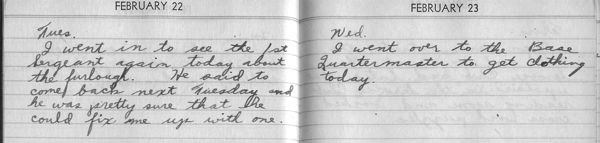 FEBRUARY 22
Tues.
I went in to see the 1st
Sergeant again today about
the furlough. He said to
come back next Tuesday and
he was pretty sure that he
could fix me up with one.
FEBRUARY 23
Wed.
I went over to the Base
Quartermaster to get clothing
today.